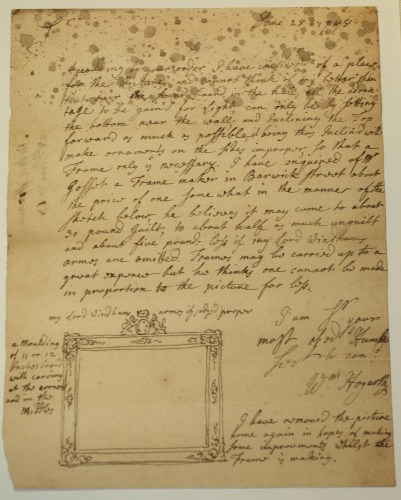 Sr
June 28 1748
According to order I have consider'd of a place
for the Picture, and cannot think of any better than
that over the in the hall, all the advan
tage to be gain'd for Light can only be by setting
the bottom near the wall, and Inclining the Top
forward as much as possible, doing this Inclin'd will
make ornaments on the sides improper, so that a
Frame only is necessary. I have enquired of Mr
Gosset a Frame maker in Barwick Street about
the price of one some what in the manner of the
sketch below he believes it may come to about
30 pound Guilt, to about half as much unguilt
and about five pounds less if my Lord Windhams
armes are omitted. Frames may be carried up to a
great expence but he thinks one cannot be made
in proportion to the picture for less.
my Lord Windhams armes if judg'd proper
a moulding
of 11 or 12
Inches
with carving
at the corners
and in the
Middles
I am Sr your
most obedt Humble
Servt to com:d
Wm Hogarth
I have removed the picture
home again in hopes of making
some improvements whilst the
Frame is making.